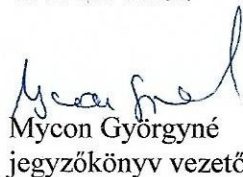 Mycon Györgyné
jegyzőkönyv vezető